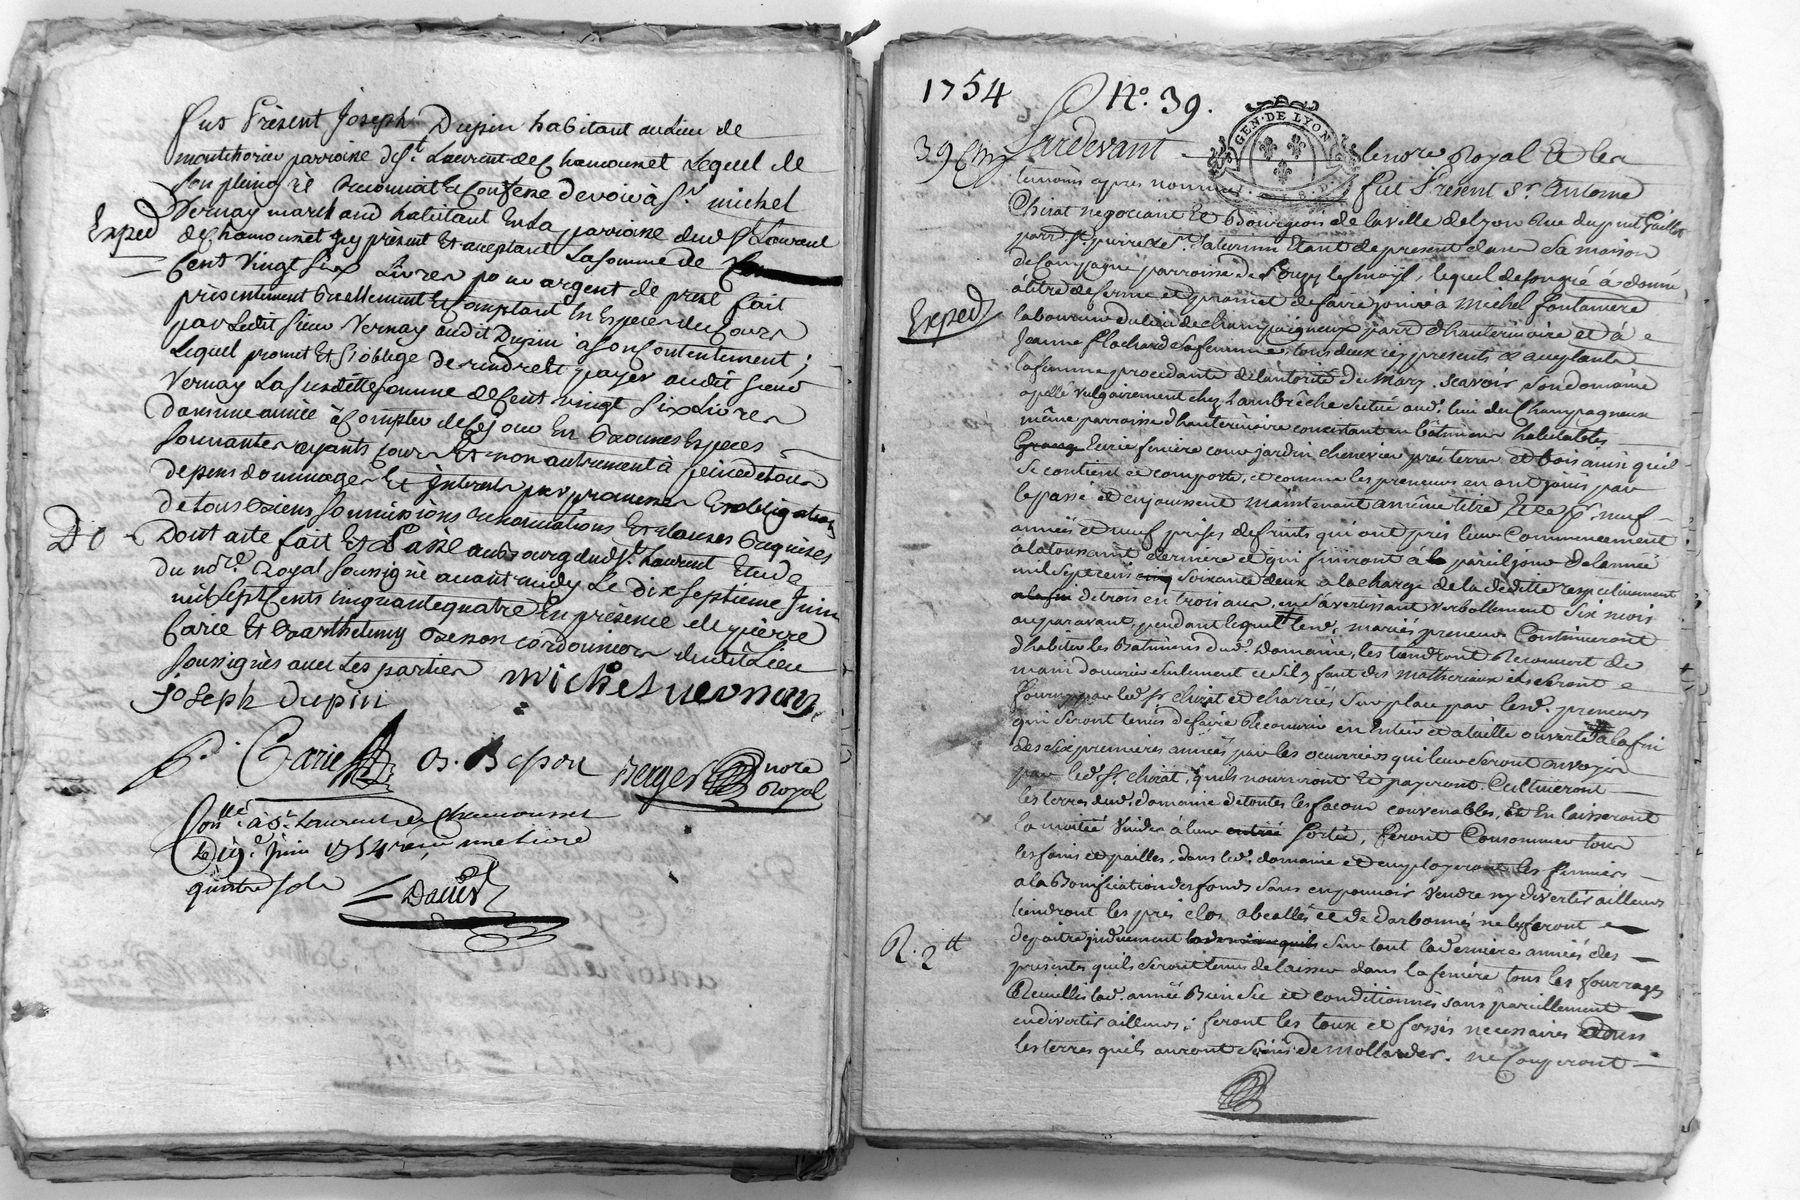 fut Présent Joseph Dupin habitant au lieu de
montchorier parroisse de St. Laurent de Chamousset Lequel de
son plein gré reconnait & Confesse devoir à Sr. michel
Vernay marchand habitant En la parroisse dud. St. Laurent
Exped
de chamousset icy présent Et acceptant La somme de
Cent Vingt Six Livres pour argent de prest fait
présentement Reellement Et Comptant En Especes du Cours
par Ledit sieur Vernay audit Dupin à son Contentement ;
Lequel promet Et s'oblige de rendre Et payer audit sieur
Vernay La susditte somme de Cent vingt Six Livres
dans une année à Compter de Ce jour En bonnes Especes
sonnantes ayants Cours Et non autrement à peine de tous
depens dommages Et Interets par promesses Et obligation
de tous Ses biens soumissions renonciations Et clauses Requises
Do
Dont acte fait Et Passé au bourg dud. St. Laurent Etude
du nore. Royal soussigné avant midy Le dix septieme Juin
mil Sept Cents cinquante quatre En présence de pierre
Carie Et Barthelemy Besson cordonniers dudit Lieu
soussignés avec Les parties
michel vernay
joseph dupin
P. Carie B. Besson Berger nore Royal
Conllé. à St. Laurent de Chamousset
Le 19e. juin 1754 reçu une livre
quatre sols
1754 No. 39.
39
Pardevant le nore Royal Et les
temoins apres nommés fut Present Sr. Antoine
Chirat negociant Et Bourgeois de la ville de Lyon Rue du puit Gaillot
parr. St. pierre & St. Saturnin Etant de present dans Sa maison
de Campagne parroisse de , lequel de son gré à donné
à titre de ferme et promet de faire jouir à Michel fontaniere
Exped
laboureur du lieu de champaigneux parr. d'hauterivoire et à
Jeanne flachard sa femme, tous deux icy presents & acceptants
la femme procedante de l'autorité du Mary, scavoir Son domaine
apellé vulgairement chez Lambrêche Situé aud. lieu de Champagneux
même parroisse d'hauterivoire consistant en bâtiments habitables
Ecurie feniere cour jardin chenevier prés terres et bois ainsi qu'il
Se contient et comporte, et comme les preneurs en ont jouis par
le passé et en jouissent maintenant au même titre Et ce pr. neuf
années et neuf prises de fruits qui ont pris leur Commencement
à la toussaint derniere et qui finiront à pareil jour de l'année
mil Sept cens cinq soixante deux à la charge de la deditte respectivement
a la fin de trois en trois ans, en S'avertissant verbalement Six mois
auparavant, pendant lequel tems les d. mariés preneurs Continueront
d'habiter les Bâtimens dud. Domaine, les tiendront Recouvert de
main d'ouvrier seulement et s'il y faut des matheriaux ils seront
fournis par led. Sr. chirat et charriés Sur place par lesd. preneurs
qui Seront tenus de faire Recouvrir en Entier et à taille ouverte à la fin
des Six premieres années par les ouvriers qui leur Seront envoyés
par led. Sr. chirat, qu'ils nourriront Et payeront. Cultiveront
les terres dud. domaine de toutes les façons convenables, Et En laisseront
la moitié vuides à leur entrée sortie, feront Consommer tous
les foins et pailles, dans led. domaine et employeront les fumiers
à la Bonification des fonds Sans en pouvoir Vendre ny divertir ailleurs
tiendront les prés clos abeallés et de Darbonnés ne les feront
R. 2tt
depaitre induement Sur tout la derniere année des
presentes qu'ils Seront tenus de laisser dans la feniere tous les fourrages
Recueillis lad. année Bien Sec et conditionnés sans pareillement
en divertir ailleurs ; feront les toux et fossés necessaires dans
les terres qu'ils auront de mollardes. ne Couperont